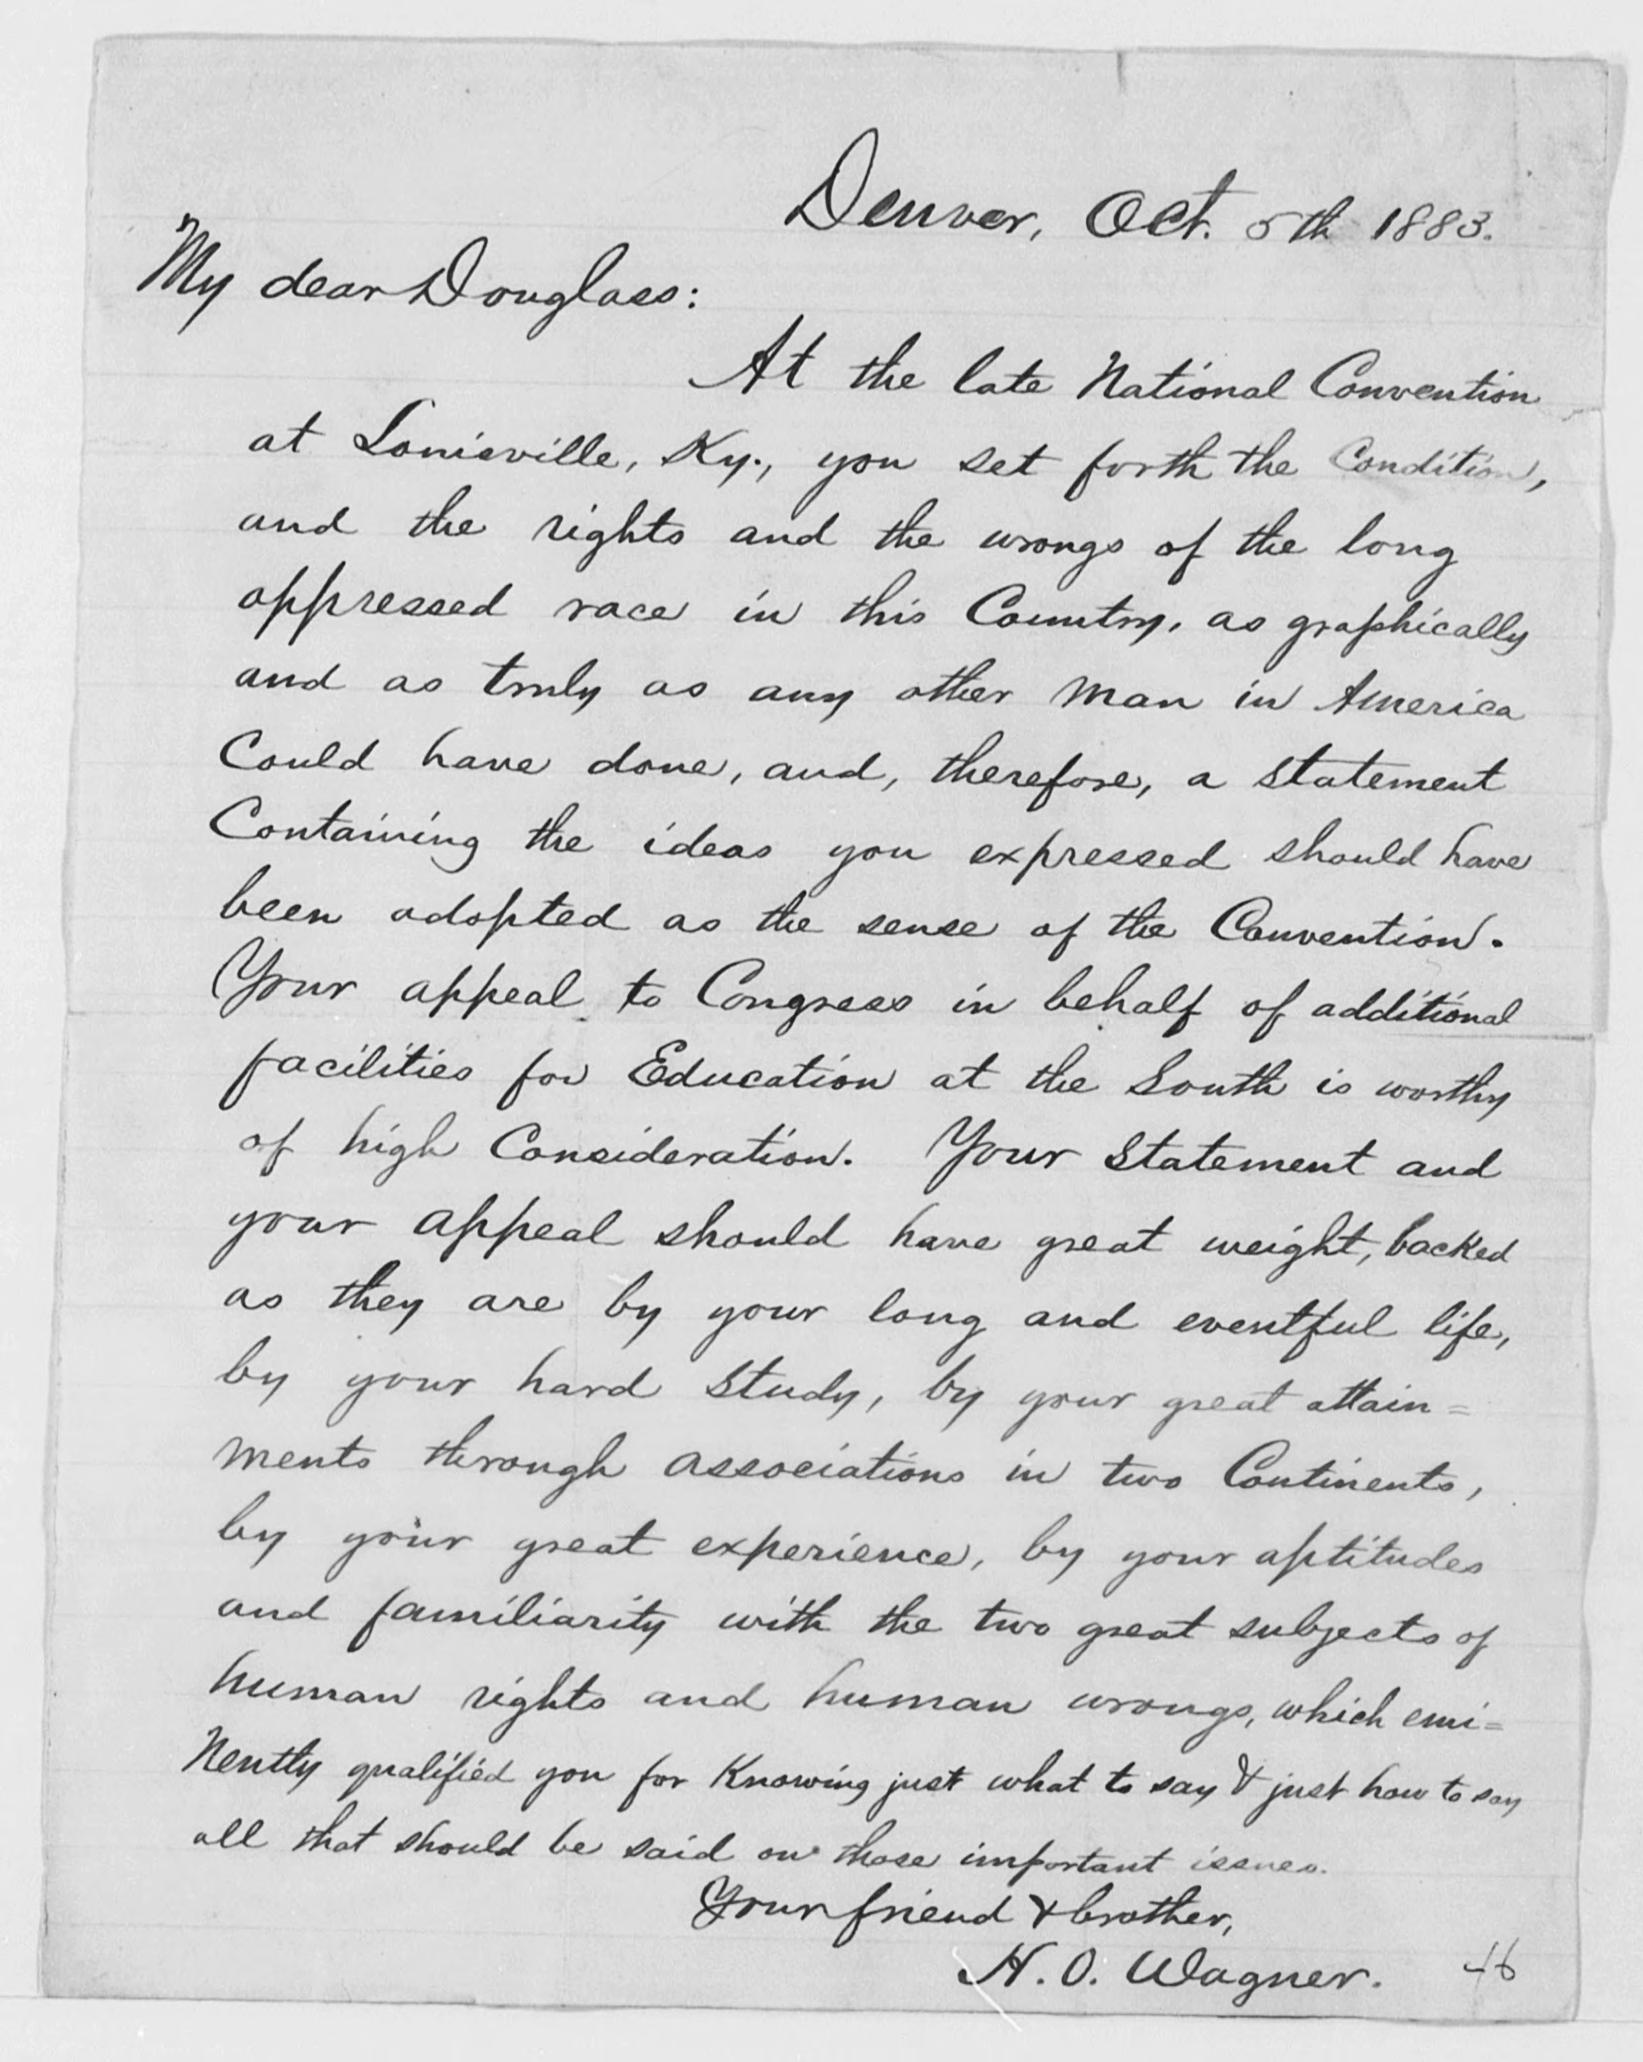 Denver, Oct. 5th 1883.
My dear Douglass:
At the late National Convention
at Louisville, Ky., you set forth the Condition,
and the rights and the wrongs of the long
oppressed race in this Country, as graphically
and as truly as any other man in America
Could have done, and, therefore, a statement
Containing the ideas you expressed should have
been adopted as the sense of the Convention.
Your appeal to Congress in behalf of additional
facilities for Education at the South is worthy
of high Consideration. Your statement and
your appeal should have great weight, backed
as they are by your long and eventful life,
by your hard study, by your great attain=
ments through associations in two Continents,
by your great experience, by your aptitudes
and familiarity with the two great subjects of
human rights and human wrongs, which emi=
nently qualified you for Knowing just what to say & just how to say
all that should be said on those important issues.
Your friend & brother,
H. O. Wagner.
46